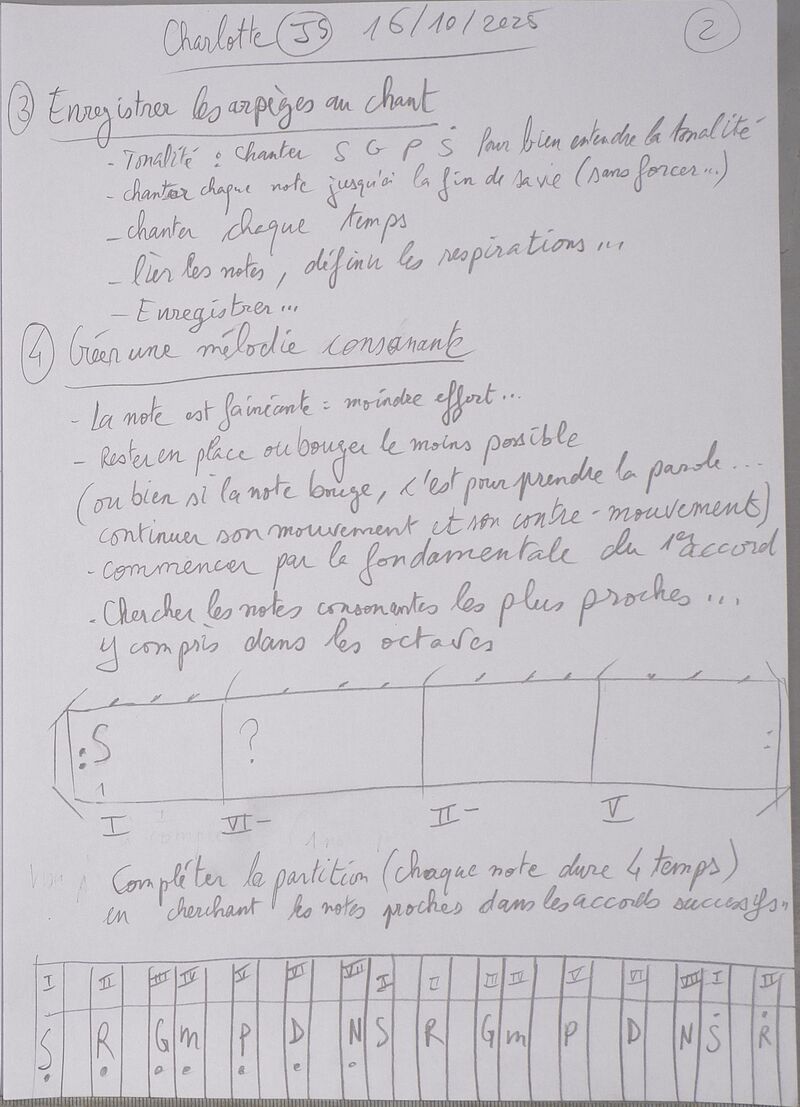 Charlotte JS 16/10/2025 2
3 Enregistrer les arpèges au chant
- Tonalité : chanter S G P Ṡ pour bien entendre la tonalité
- chanter chaque note jusqu'à la fin de sa vie (sans forcer...)
- chanter chaque temps
- lier les notes, définir les respirations...
- Enregistrer...
4 Créer une mélodie consonante
- La note est fainéante = moindre effort...
- Rester en place ou bouger le moins possible
(ou bien si la note bouge, c'est pour prendre la parole...
continuer son mouvement et son contre-mouvement)
- commencer par la fondamentale du 1er accord
- Chercher les notes consonantes les plus proches...
y compris dans les octaves
: S ? :
1
I VI- II- V
Compléter la partition (chaque note dure 4 temps)
en cherchant les notes proches dans les accords successifs..
I II III IV V VI VII I II III IV V VI VII I II
Ṣ Ṛ G̣ ṃ P̣ Ḍ Ṇ S R G m P D N Ṡ Ṙ